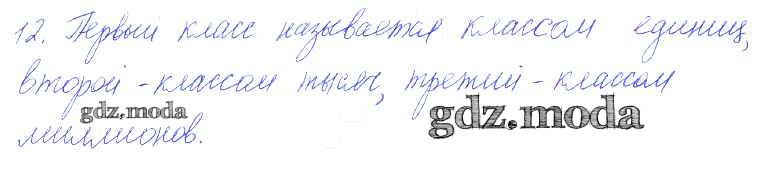 12. Первый класс называется классом единиц,
второй - классом тысяч, третий - классом
gdz.moda gdz.moda
миллионов.